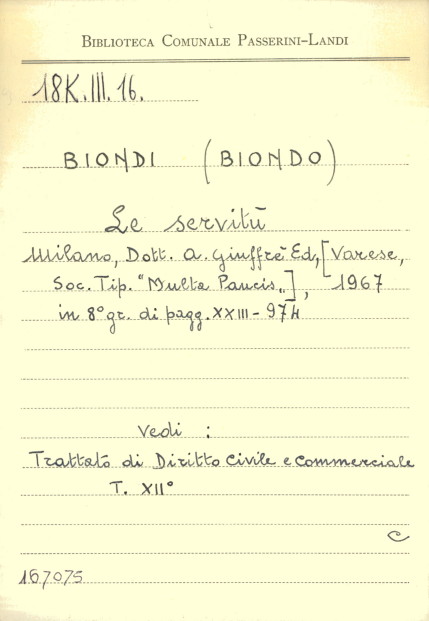 BIBLIOTECA COMUNALE PASSERINI-LANDI
18K.III.16.
BIONDI (BIONDO)
Le servitù
Milano, Dott. A. Giuffrè Ed, [Varese,
Soc. Tip. "Multa Paucis„], 1967
in 8° gr. di pagg. XXIII - 974
Vedi :
Trattato di Diritto Civile e Commerciale
T. XII°
C
167075